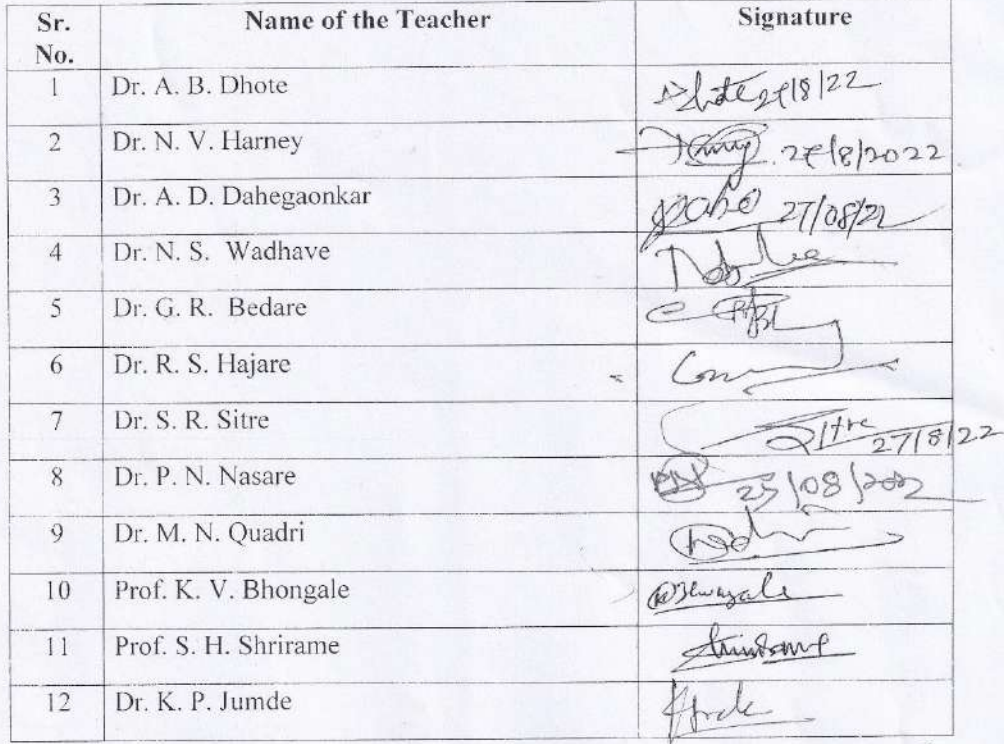 Sr. No. Name of the Teacher Signature
1 Dr. A. B. Dhote
2 Dr. N. V. Harney
3 Dr. A. D. Dahegaonkar 27/08/22
4 Dr. N. S. Wadhave
5 Dr. G. R. Bedare
6 Dr. R. S. Hajare
7 Dr. S. R. Sitre Sitre 27/8/22
8 Dr. P. N. Nasare
9 Dr. M. N. Quadri
10 Prof. K. V. Bhongale
11 Prof. S. H. Shrirame
12 Dr. K. P. Jumde